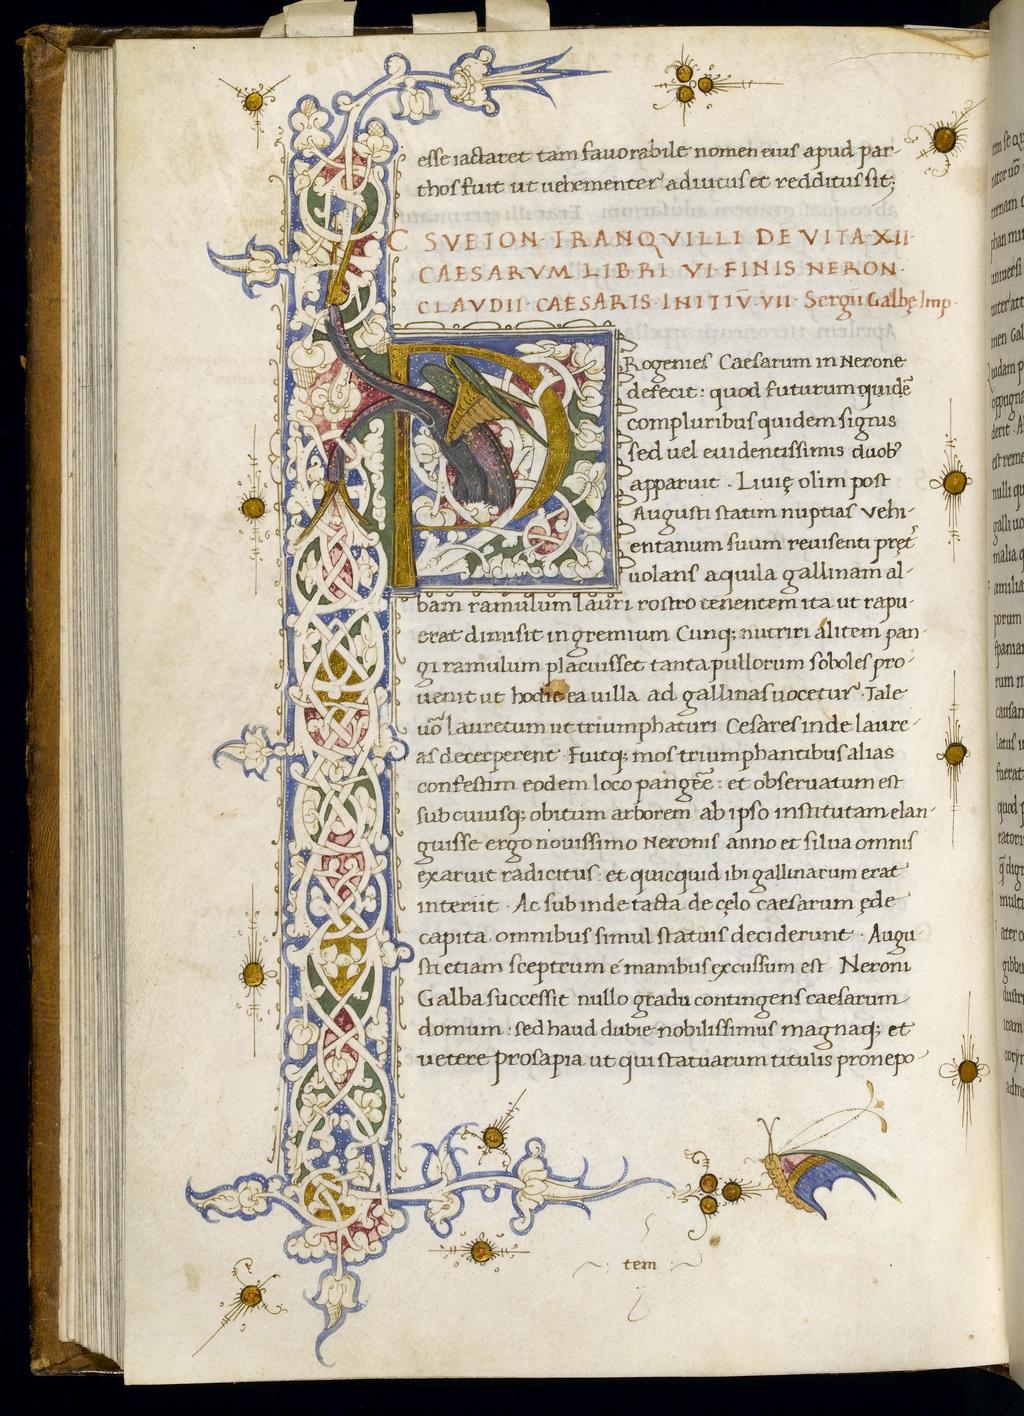 esse iactaret tam fauorabile nomen eius apud par-
thos fuit ut uehementer adiutus et redditus sit;
C SVETON· TRANQVILLI DE VITA XII·
CAESARVM LIBRI VI FINIS NERON·
CLAVDII· CAESARIS· INITIṼ· VII· Sergii Galbę Imp·
PRogenies Caesarum in Nerone
defecit: quod futurum quidē
compluribus quidem signis
sed uel euidentissimis duob'
apparuit · Liuię olim post
Augusti statim nuptias vehi-
entanum suum reuisenti pręt'
uolans aquila gallinam al-
bam ramulum lauri rostro tenentem ita ut rapu-
erat dimisit in gremium Cunq; nutriri alitem pan-
gi ramulum placuisset tanta pullorum soboles pro-
uenit ut hodie ea uilla ad gallinas uocetur· Tale
uō lauretum ut triumphaturi Cesares inde laure-
as decerperent· Fuitq; mos triumphantibus alias
confestim eodem loco pangēē: et obseruatum est
sub cuiusq; obitum arborem ab ipso institutam elan-
guisse ergo nouissimo Neronis anno et silua omnis
exaruit radicitus: et quicquid ibi gallinarum erat
interiit · Ac subinde tacta de cęlo caesarum ęde
capita omnibus simul statuis deciderunt · Augu-
sti etiam sceptrum e manibus excussum est · Neroni
Galba successit nullo gradu contingens caesarum
domum: sed haud dubie nobilissimus magnaq; et
uetere prosapia ut qui statuarum titulis pronepo-
tem